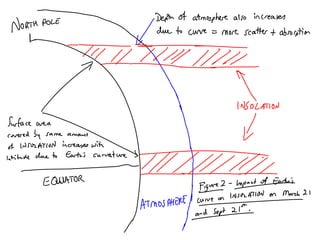 NORTH POLE
Depth of atmosphere also increases
due to curve = more scatter + absorption
INSOLATION
Surface area
covered by same amount
of INSOLATION increases with
latitude due to Earth's curvature
EQUATOR
ATMOSPHERE
Figure 2 - Impact of Earth's
curve on INSOLATION on March 21
and Sept 21st.